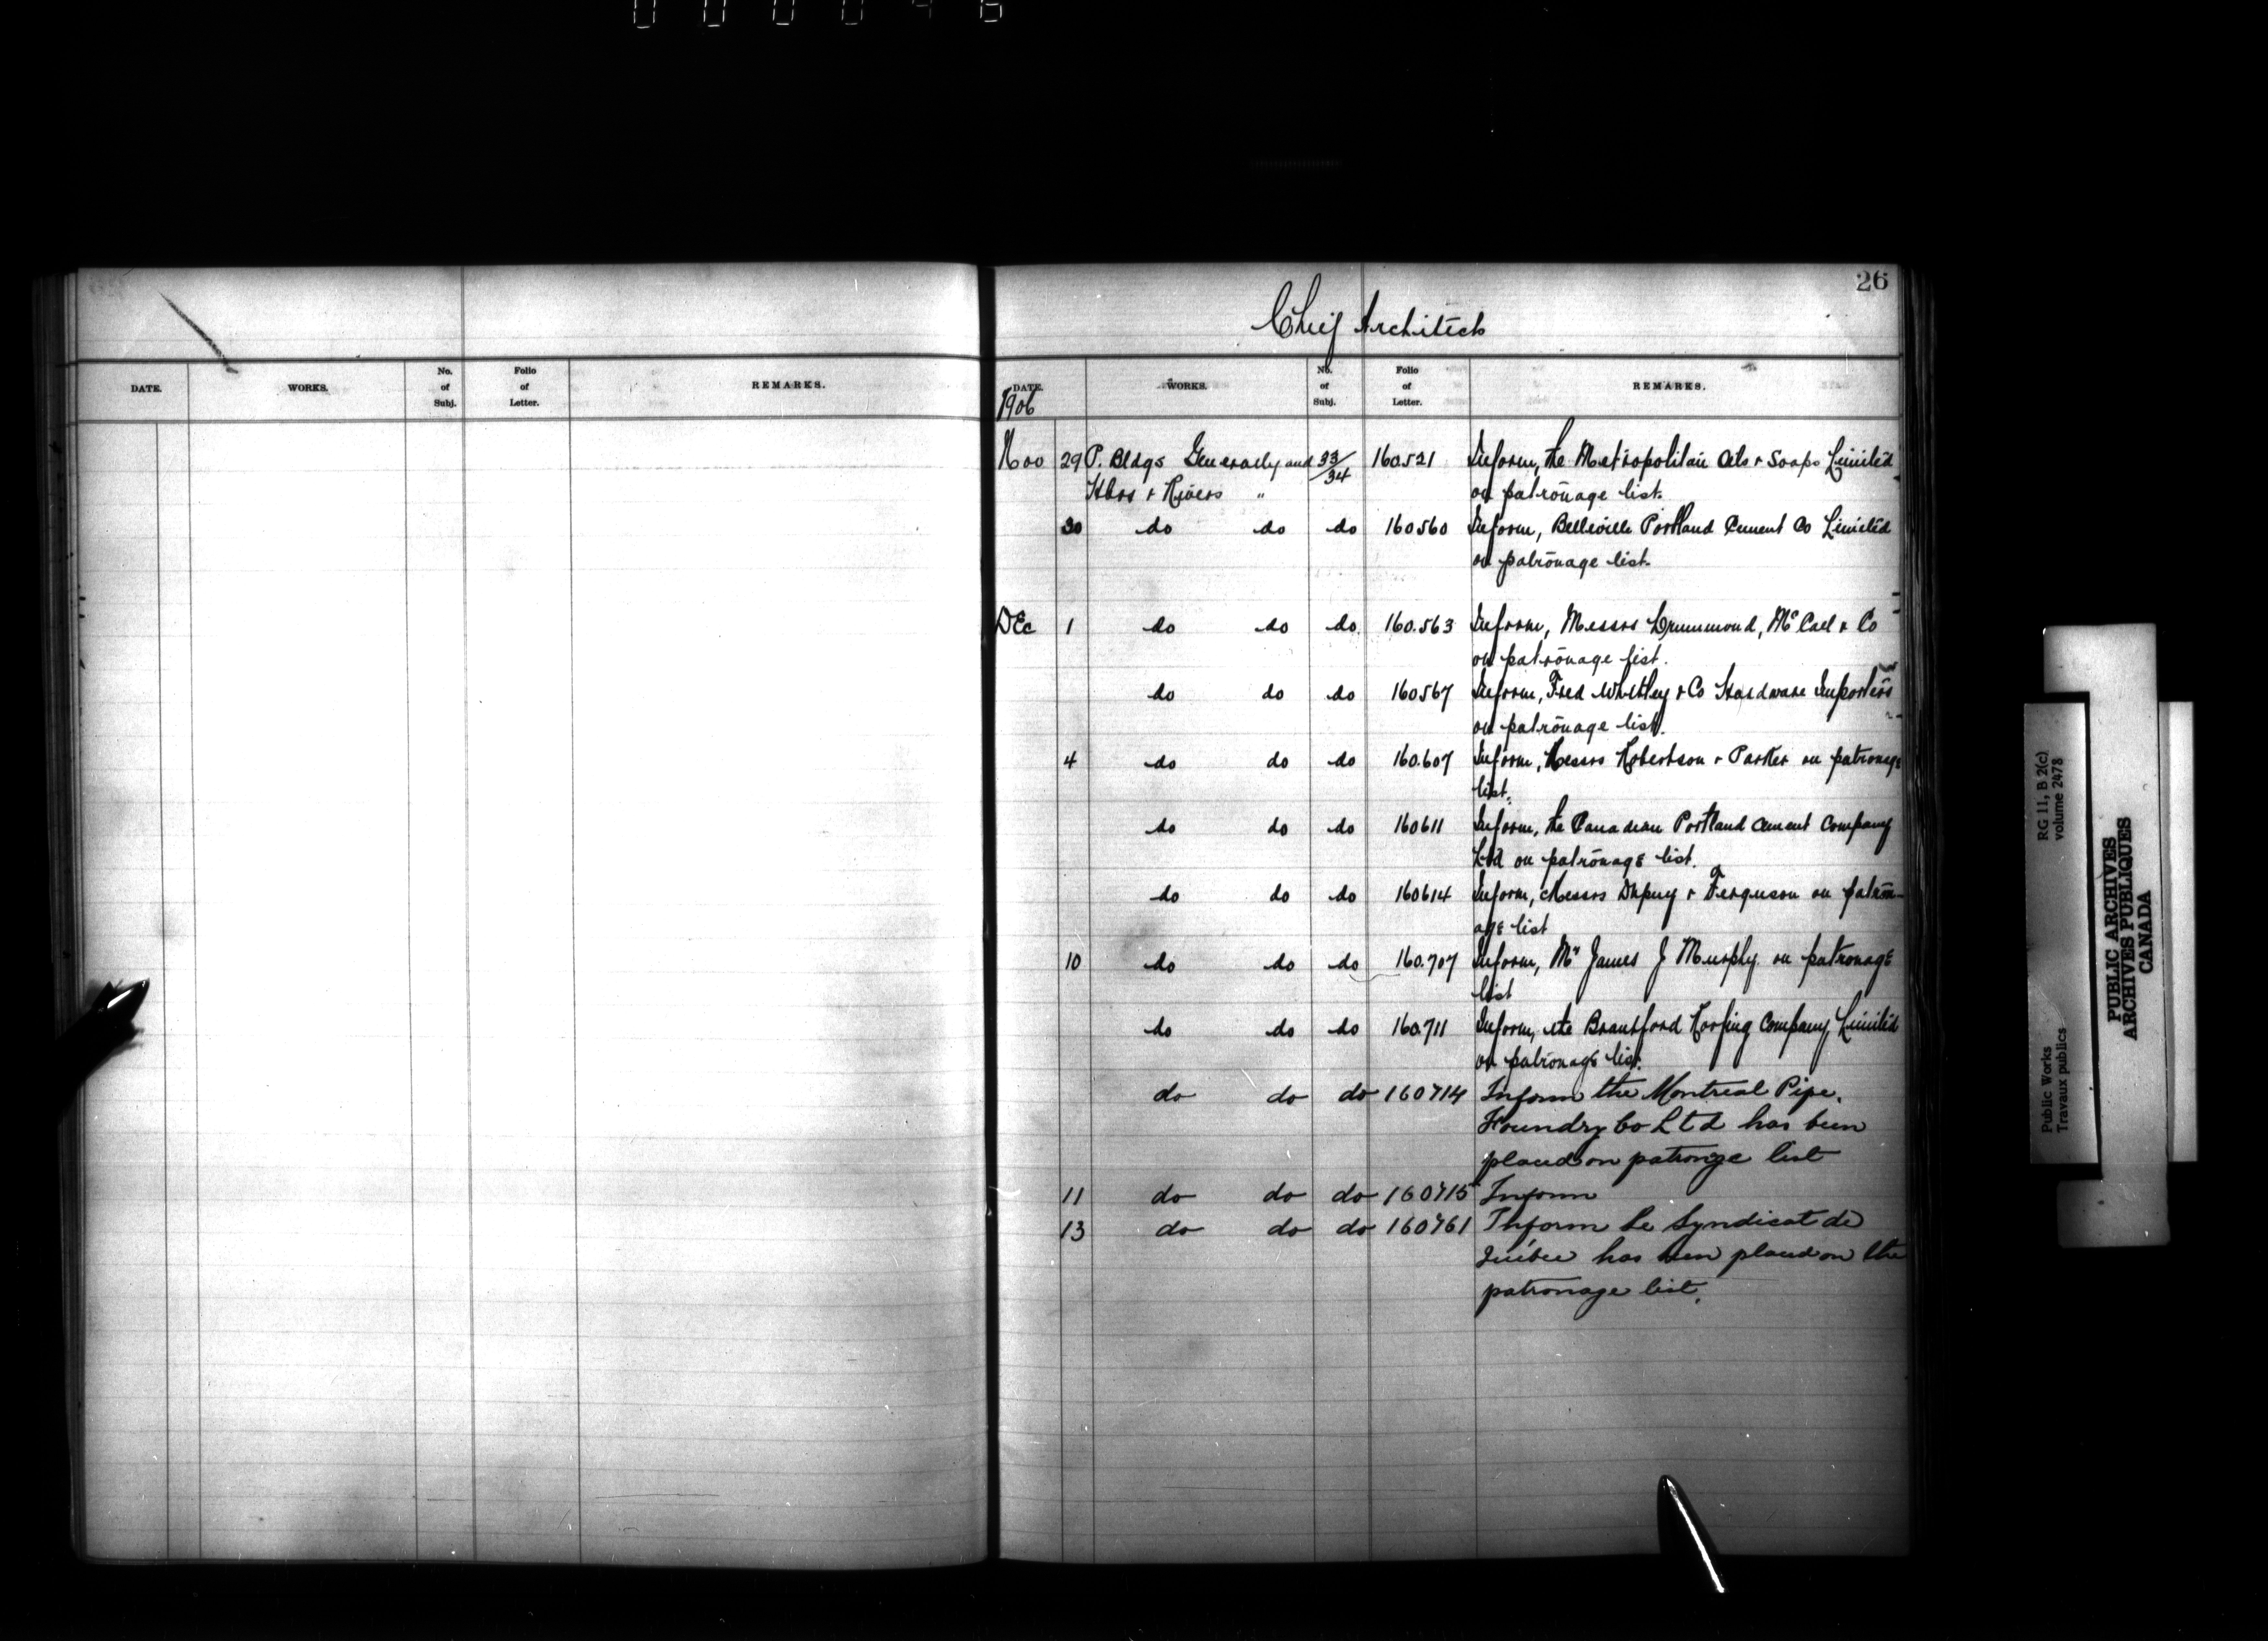 26
Chief Architect
DATE. WORKS. No. of Subj. Folio of Letter. REMARKS.
DATE. WORKS. No. of Subj. Folio of Letter. REMARKS.
1906
Nov 29 P. Bldgs Generally and 33/34 160521 Inform, the Metropolitan Oils & Soaps Limited
Hbrs & Rivers " on patronage list.
30 do do do 160560 Inform, Belleville Portland Cement Co Limited
on patronage list.
DEc 1 do do do 160.563 Inform, Messrs Drummond, McCall & Co
on patronage list.
do do do 160567 Inform, Fred Whitley & Co Hardware Importers
on patronage list.
4 do do do 160.607 Inform, Messrs Robertson & Parker on patronage
list.
do do do 160611 Inform, the Canadian Portland Cement Company
Ltd on patronage list.
do do do 160614 Inform, Messrs Dupuy & Ferguson on patron-
age list
10 do do do 160.707 Inform, Mr James J Murphy on patronage
list
do do do 160.711 Inform, the Brantford Roofing Company, Limited
on patronage list.
do do do 160714 Inform the Montreal Pipe,
Foundry Co Ltd has been
placed on patronge list
11 do do do 160715 Inform
13 do do do 160761 Inform Le Syndicat de
Quibec has been placed on the
patronage list.
Public Works RG 11, B 2(c)
Travaux publics volume 2478
PUBLIC ARCHIVES
ARCHIVES PUBLIQUES
CANADA